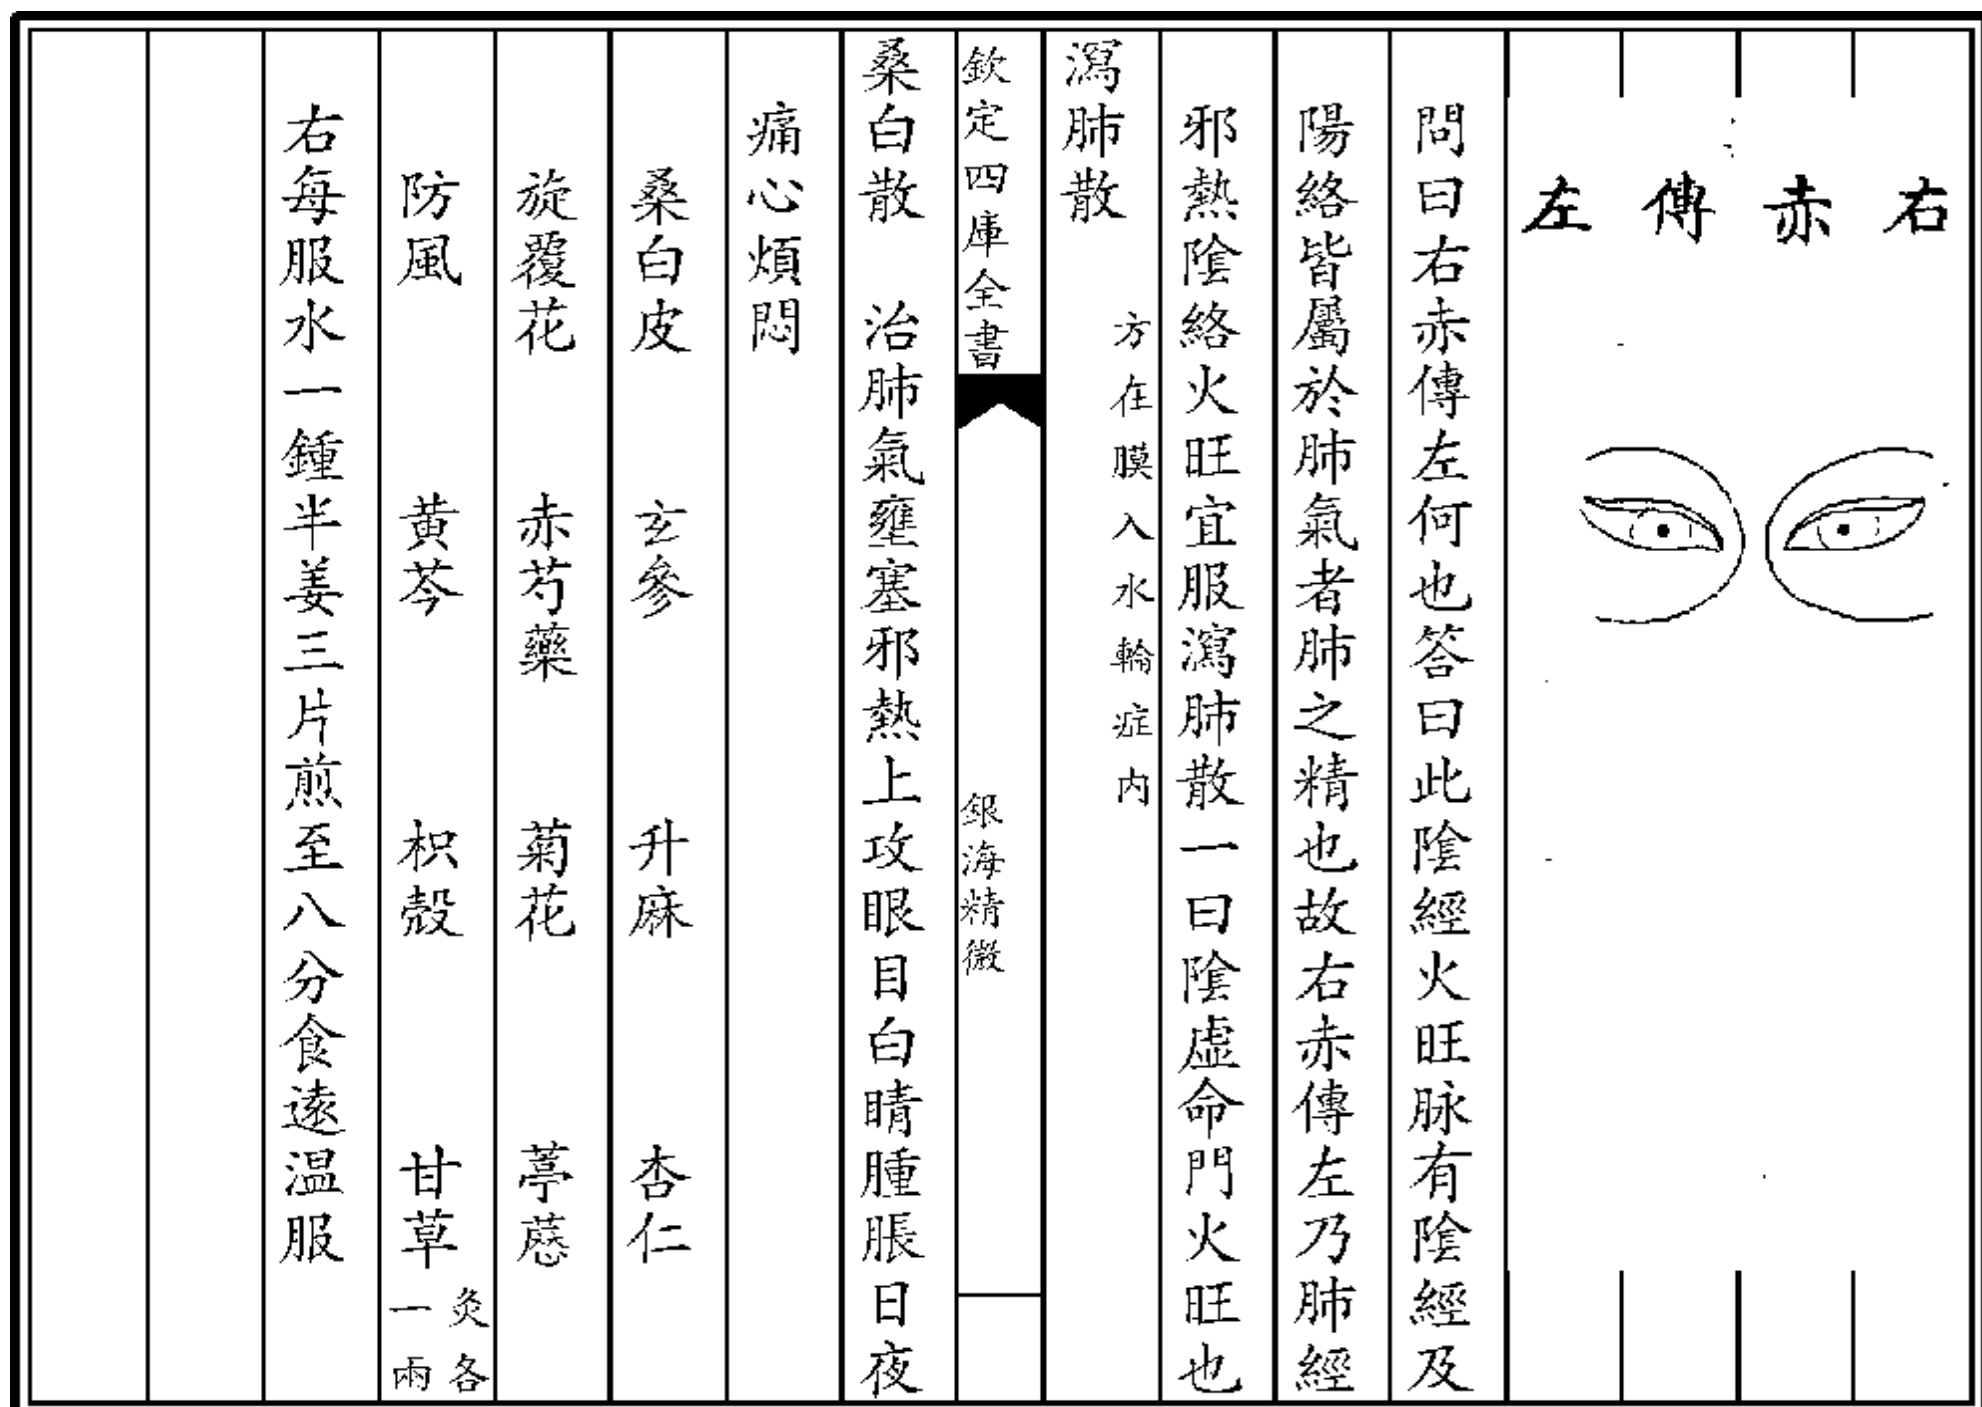 右赤傳左
問曰右赤傳左何也答曰此陰經火旺脉有陰經及
陽絡皆屬於肺氣者肺之精也故右赤傳左乃肺經
邪熱陰絡火旺宜服瀉肺散一曰陰虛命門火旺也
瀉肺散
方在膜入水輪症内
欽定四庫全書
銀海精微
桑白散　治肺氣壅塞邪熱上攻眼目白睛腫脹日夜
痛心煩悶
桑白皮　玄參　升麻　杏仁
旋覆花　赤芍藥　菊花　葶藶
防風　黄芩　枳殻　甘草灸各一兩
右每服水一鍾半姜三片煎至八分食遠温服